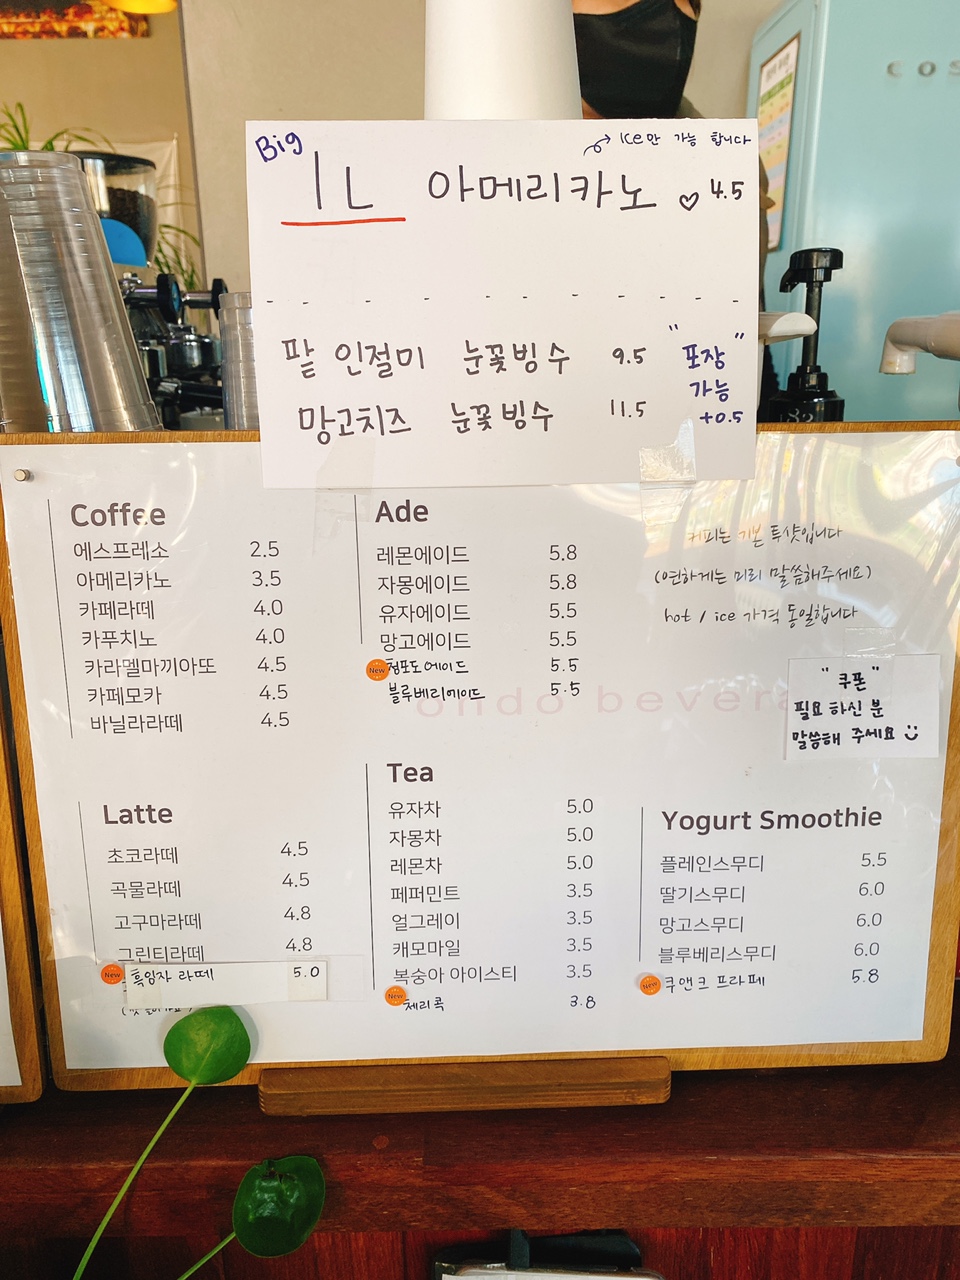 COS
Big
1L 아메리카노 ♡ 4.5
Ice만 가능 합니다
팥 인절미 눈꽃빙수 9.5
망고치즈 눈꽃빙수 11.5
"포장"
가능
+0.5
Coffee
에스프레소 2.5
아메리카노 3.5
카페라떼 4.0
카푸치노 4.0
카라멜마끼아또 4.5
카페모카 4.5
바닐라라떼 4.5
Ade
레몬에이드 5.8
자몽에이드 5.8
유자에이드 5.5
망고에이드 5.5
New 청포도에이드 5.5
블루베리에이드 5.5
커피는 기본 투샷입니다
(연하게는 미리 말씀해주세요)
hot / ice 가격 동일합니다
"쿠폰"
필요하신 분
말씀해 주세요
ondo bevera
Latte
초코라떼 4.5
곡물라떼 4.5
고구마라떼 4.8
그린티라떼 4.8
New 흑임자 라떼 5.0
Tea
유자차 5.0
자몽차 5.0
레몬차 5.0
페퍼민트 3.5
얼그레이 3.5
캐모마일 3.5
복숭아 아이스티 3.5
New 체리콕 3.8
Yogurt Smoothie
플레인스무디 5.5
딸기스무디 6.0
망고스무디 6.0
블루베리스무디 6.0
New 쿠앤크 프라페 5.8